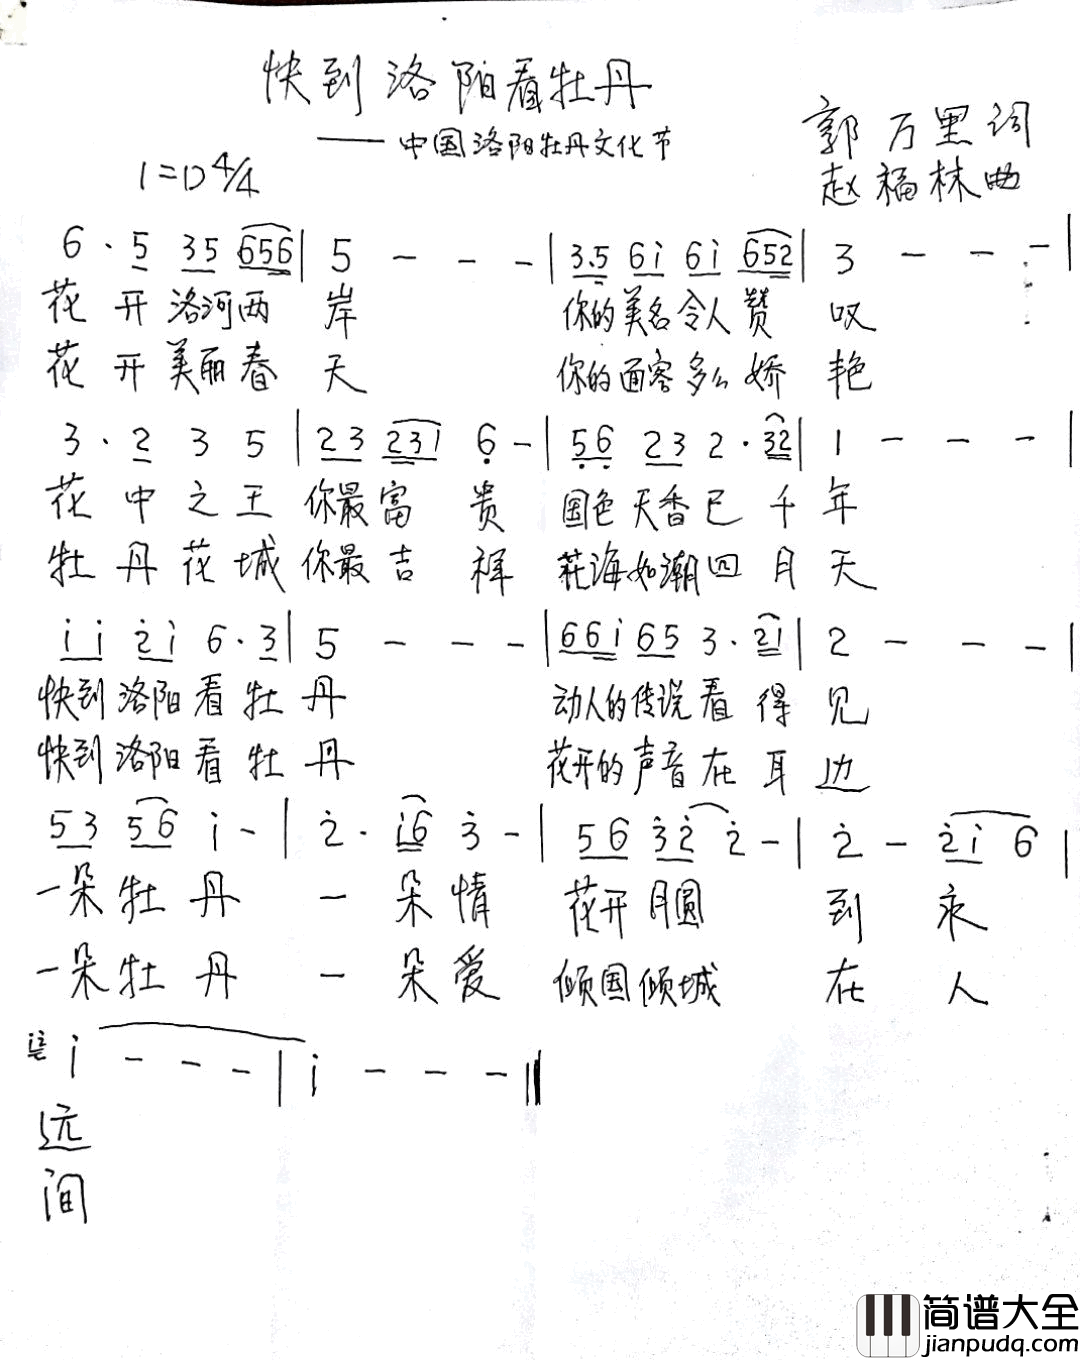 快到洛阳看牡丹
——中国洛阳牡丹文化节
郭万里词
1=D 4/4
赵福林曲
6 · 5 35 656 | 5 - - - | 3.5 6i 6i 652 | 3 - - - |
花开洛河两岸 你的美名令人赞叹
花开美丽春天 你的面容多么娇艳
3 · 2 3 5 | 23 231 6̣ - | 5̣6̣ 23 2 · 32 | 1 - - - |
花中之王你最富贵 国色天香已千年
牡丹花城你最吉祥 花海如潮四月天
i i 2̇ i 6 · 3 | 5 - - - | 66i 65 3 · 21 | 2 - - - |
快到洛阳看牡丹 动人的传说看得见
快到洛阳看牡丹 花开的声音在耳边
53 56 i - | 2̇ · i6 3̇ - | 56 3̇2̇ 2̇ - | 2̇ - 2̇i 6 |
一朵牡丹一朵情 花开月圆到永
一朵牡丹一朵爱 倾国倾城在人
i2̇ i - - - | i - - - ‖
远
间
简谱大全
jianpudq.com